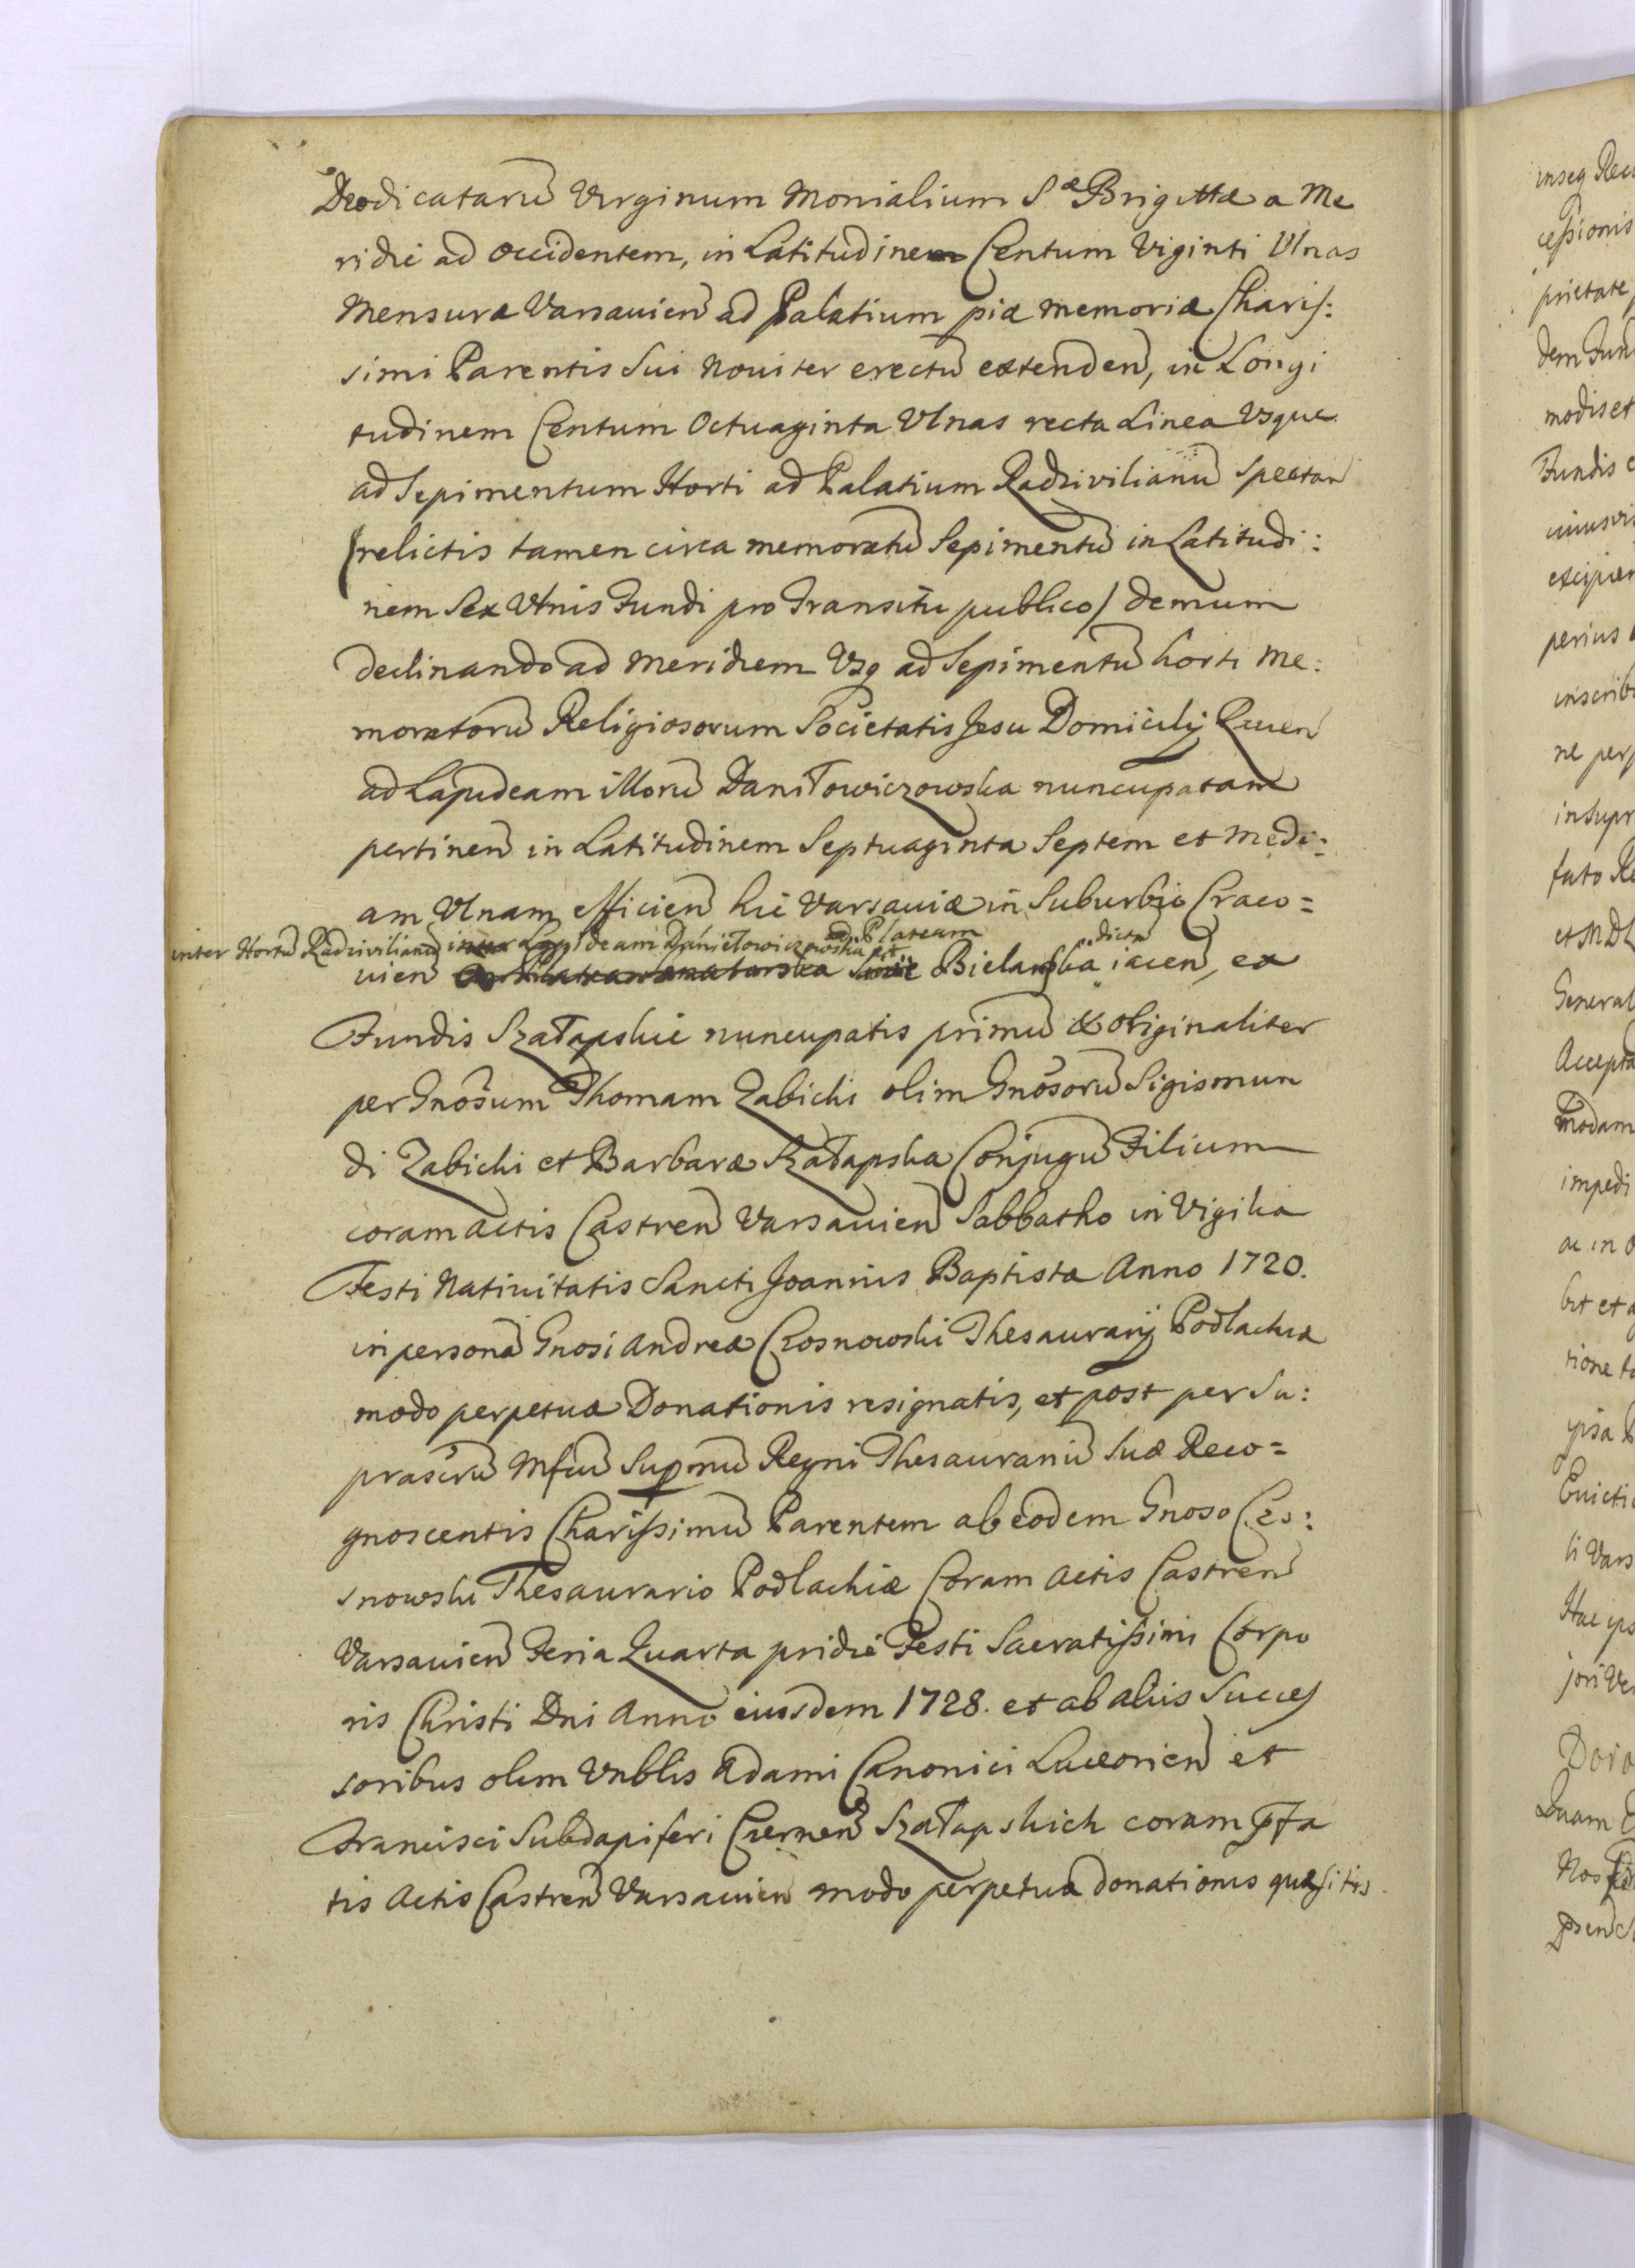 Deodicatarũ Virginum Monialium S^æ Brigittæ a Me
ridie ad occidentem, in Latitudinem Centum Viginti Ulnas
Mensuræ Varsavieñ ad Palatium piæ memoriæ Charis:
simi Parentis Sui Noviter erectũ extendeñ, in Longi
tudinem Centum Octuaginta Ulnas recta Linea Usque
ad Sepimentum Horti ad Palatium Radzivilianũ Spectañ
(relictis tamen circa memoratũ Sepimentũ in Latitudi:
nem Sex Ulnis Fundi pro Transitu publico) demum
declinando ad Meridiem Usq ad Sepimentũ horti Me:
moratorũ Religiosorum Societatis Jesu Domicilij
ad Lapideam illorũ Daniłowiczowska nuncupatam
pertineñ in Latitudinem Septuaginta Septem et Medi:
am Ulnam efficieñ hic Varsaviæ in Suburbio Craco=
inter Hortũ Radzivilianũ Lapideam Daniełowiczowska ad Plateam dicta
vieñ Bielanska iaceñ, ex
Fundis Szałapskie nuncupatis primũ & originaliter
per Gnosum Thomam Zabicki olim Gnosorũ Sigismun
di Zabicki et Barbaræ Szałapska Conjugũ Filium
coram actis Castreñ Varsavieñ Sabbatho in Vigilia
Festi Nativitatis Sancti Joannis Baptistæ Anno 1720.
in personã Gnosi Andreæ Czosnowski Thesaurarij Podlachiæ
modo perpetuæ Donationis resignatis, et post per Su:
prascrũ Mfcũ Supmũ Regni Thesaurariũ Suæ Reco=
gnoscentis Charissimũ Parentem ab eodem Gnoso Czo:
snowski Thesaurario Podlachiæ Coram Actis Castreñ
Varsavieñ Feria Quarta pridie Festi Sacratissimi Corpo
ris Christi Dni Anno eiusdem 1728. et ab aliis Succes
soribus olim Vnblis Adami Canonici Luceorieñ et
Francisci Subdapiferi Czerneñ Szałapskich coram pfa
tis Actis Castreñ Varsavieñ modo perpetuæ donationis quæsitis
inseq
cessionis
prietate
dem
modis et
Fundis
excipien
perius
inscrib
ne perp
insupr
fato
General
Accepta
modam
impedi
ac in
bit et
tione
ipsa
Evictio
Quam
Nos